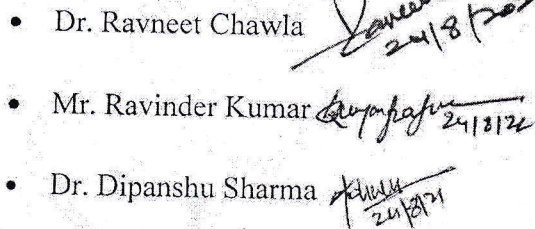 • Dr. Ravneet Chawla
24/8/202
• Mr. Ravinder Kumar
24/8/22
• Dr. Dipanshu Sharma
24/8/21